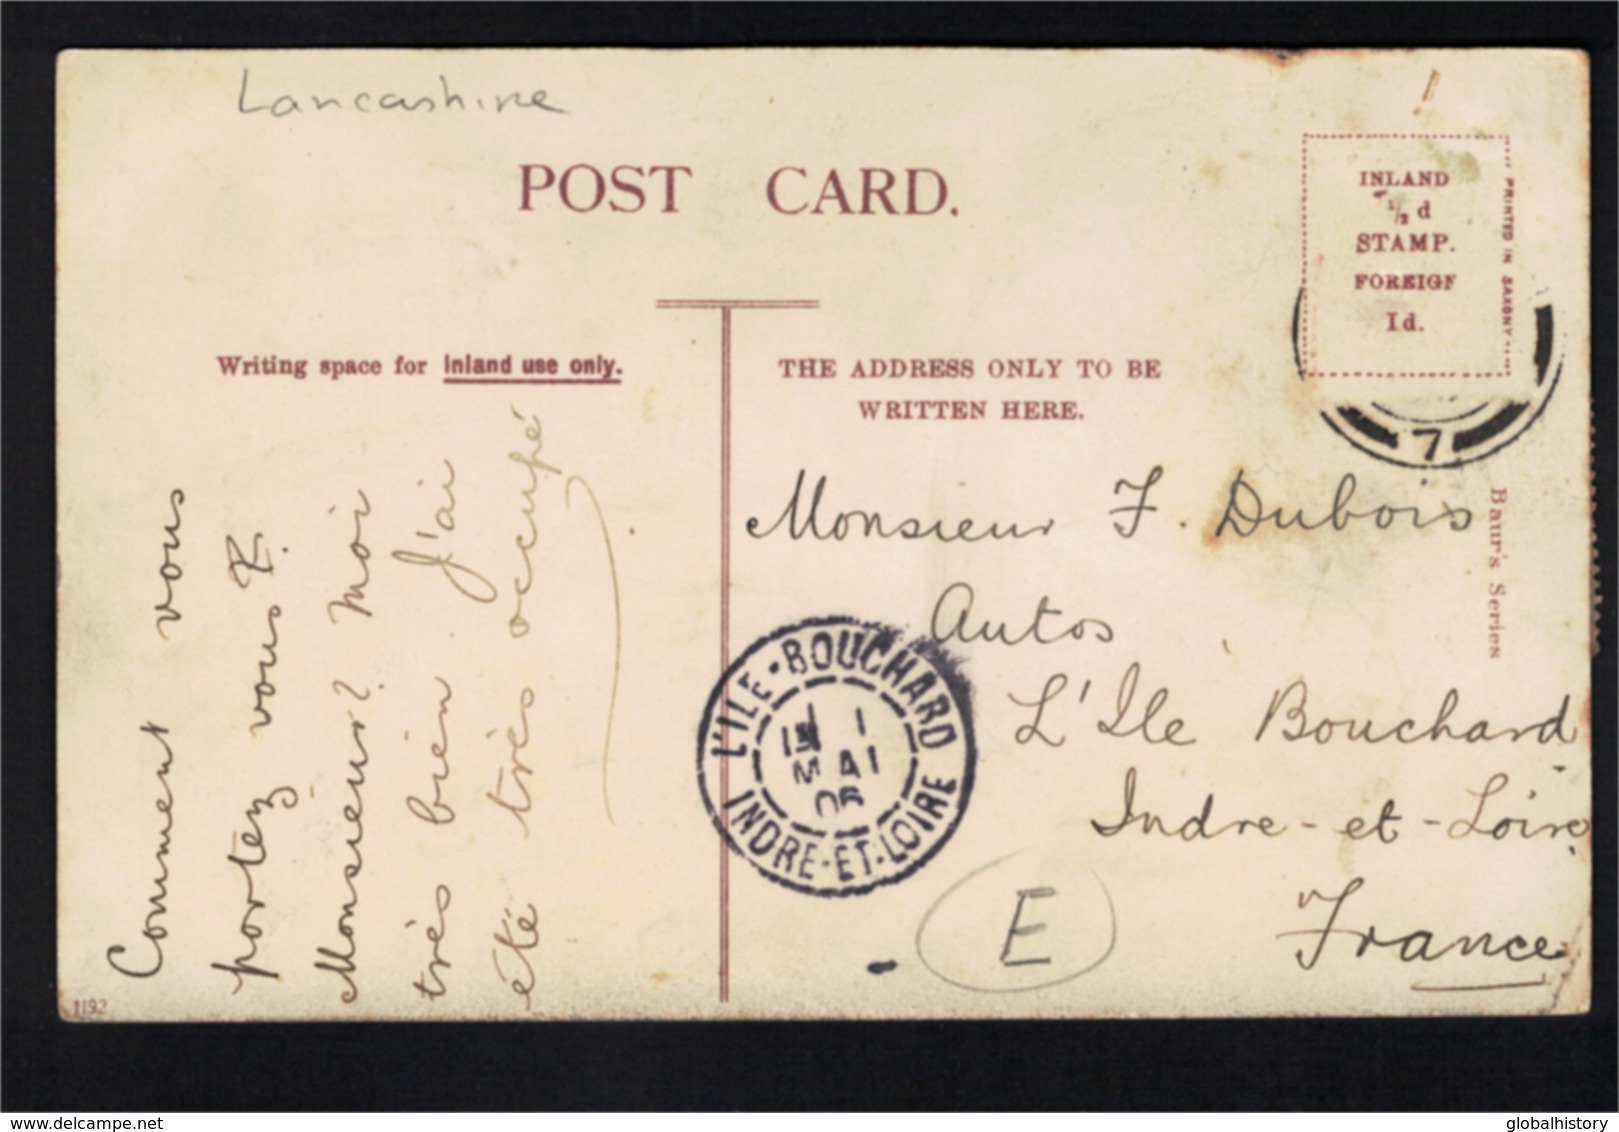 Lancashire
POST CARD.
INLAND
½ d
STAMP.
FOREIGN
1d.
PRINTED IN SAXONY
7
Writing space for Inland use only.
THE ADDRESS ONLY TO BE
WRITTEN HERE.
Comment vous
portez vous?
Monsieur? Moi
très bien. J'ai
été très occupé
Monsieur F. Dubois
Autos
L'Ile Bouchard
Indre-et-Loire
France
L'ILE-BOUCHARD
1
MAI
06
INDRE-ET-LOIRE
E
Baur's Series
1192
delcampe.net
globalhistory